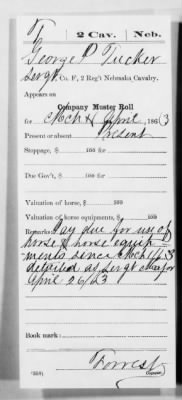 T | 2 Cav. | Neb.
George P Tucker
Sergt, Co. F, 2 Reg't Nebraska Cavalry.
Appears on
Company Muster Roll
for Mch & April, 1863
Present or absent Present
Stoppage, $ 100 for
Due Gov't, $ 100 for
Valuation of horse, $ 100
Valuation of horse equipments, $ 100
Remarks: Pay due for use of
horse & horse equip-
ments since Mch 1/63
detailed as Sergt Major
April 26/63
Book mark:
Forrest
(358) Copyist.